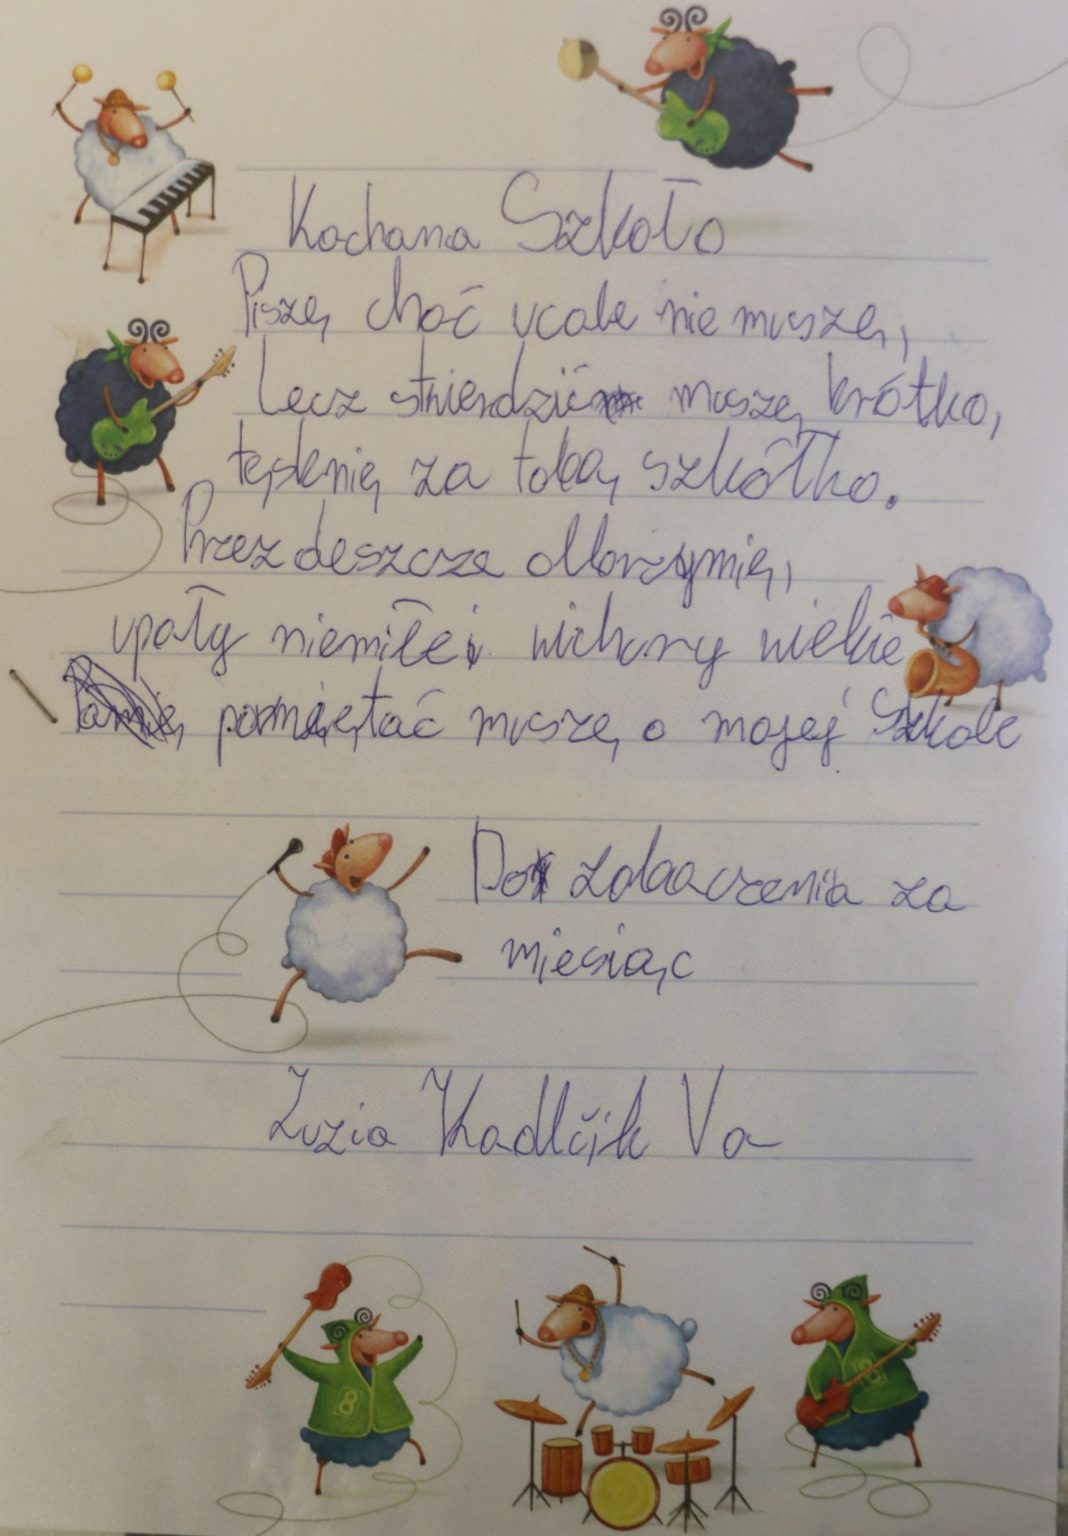 Kochana Szkoło
Piszę choć wcale nie muszę,
Lecz stwierdzić muszę krótko,
tęsknię za tobą szkółko.
Przez deszcze olbrzymię,
upały niemiłe i wichury wielkie
pamiętać muszę o mojej Szkole
Do zobaczenia za
miesiąc
Zuzia Kadlčik Va
8
8